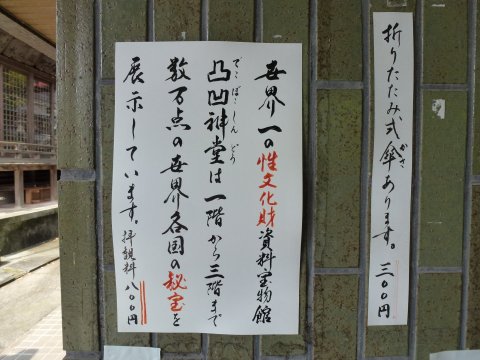 折りたたみ式傘あります。三〇〇円
がさ
世界一の性文化財資料宝物館
でこぼこしんどう
凸凹神堂は一階から三階まで
数万点の世界各国の秘宝を
展示しています。拝観料八〇〇円